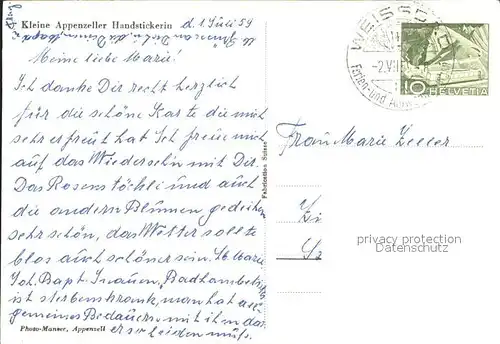 Kleine Appenzeller Handstickerin
d. 1. Juli 59
Meine liebe Marie!
Ich danke Dir recht herzlich
für die schöne Karte die mich
sehr erfreut hat Ich freue mich
auf das Wiedersehn mit Dir.
Das Rosenstöckli und auch
die andern Blumen gedeihen
sehr schön, das Wetter sollte
blos auch schöner sein. Lb Marie
Joh. Bapt. Inauen,
ist sterbenskrank, man hat all-
gemeines Bedauern mit ihm das
er so leiden muß.
Photo-Manser, Appenzell
WEISSBAD
-2.VII
Ferien- und
10
HELVETIA
Frau Marie Zeller
privacy protection
Datenschutz